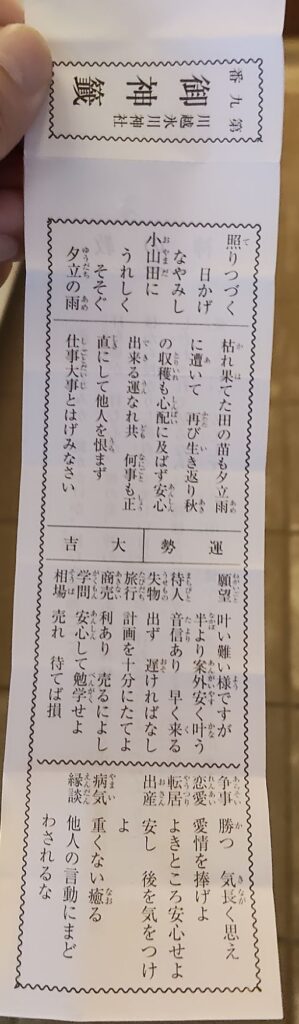 第九番
御神籤
川越氷川神社
照りつづく
日かげ
なやみし
小山田に
うれしく
そそぐ
夕立の雨
枯れ果てた田の苗も夕立雨
に遭いて 再び生き返り秋
の収穫も心配に及ばず安心
出来る運なれ共 何事も正
直にして他人を恨まず
仕事大事とはげみなさい
運勢 大吉
願望 叶い難い様ですが
半より案外安く叶う
待人 音信あり 早く来る
失物 出ず 遅ければなし
旅行 計画を十分にたてよ
商売 利あり 売るによし
学問 安心して勉学せよ
相場 売れ 待てば損
争事 勝つ 気長く思え
恋愛 愛情を捧げよ
転居 よきところ安心せよ
出産 安し 後を気をつけ
よ
病気 重くない癒る
縁談 他人の言動にまど
わされるな